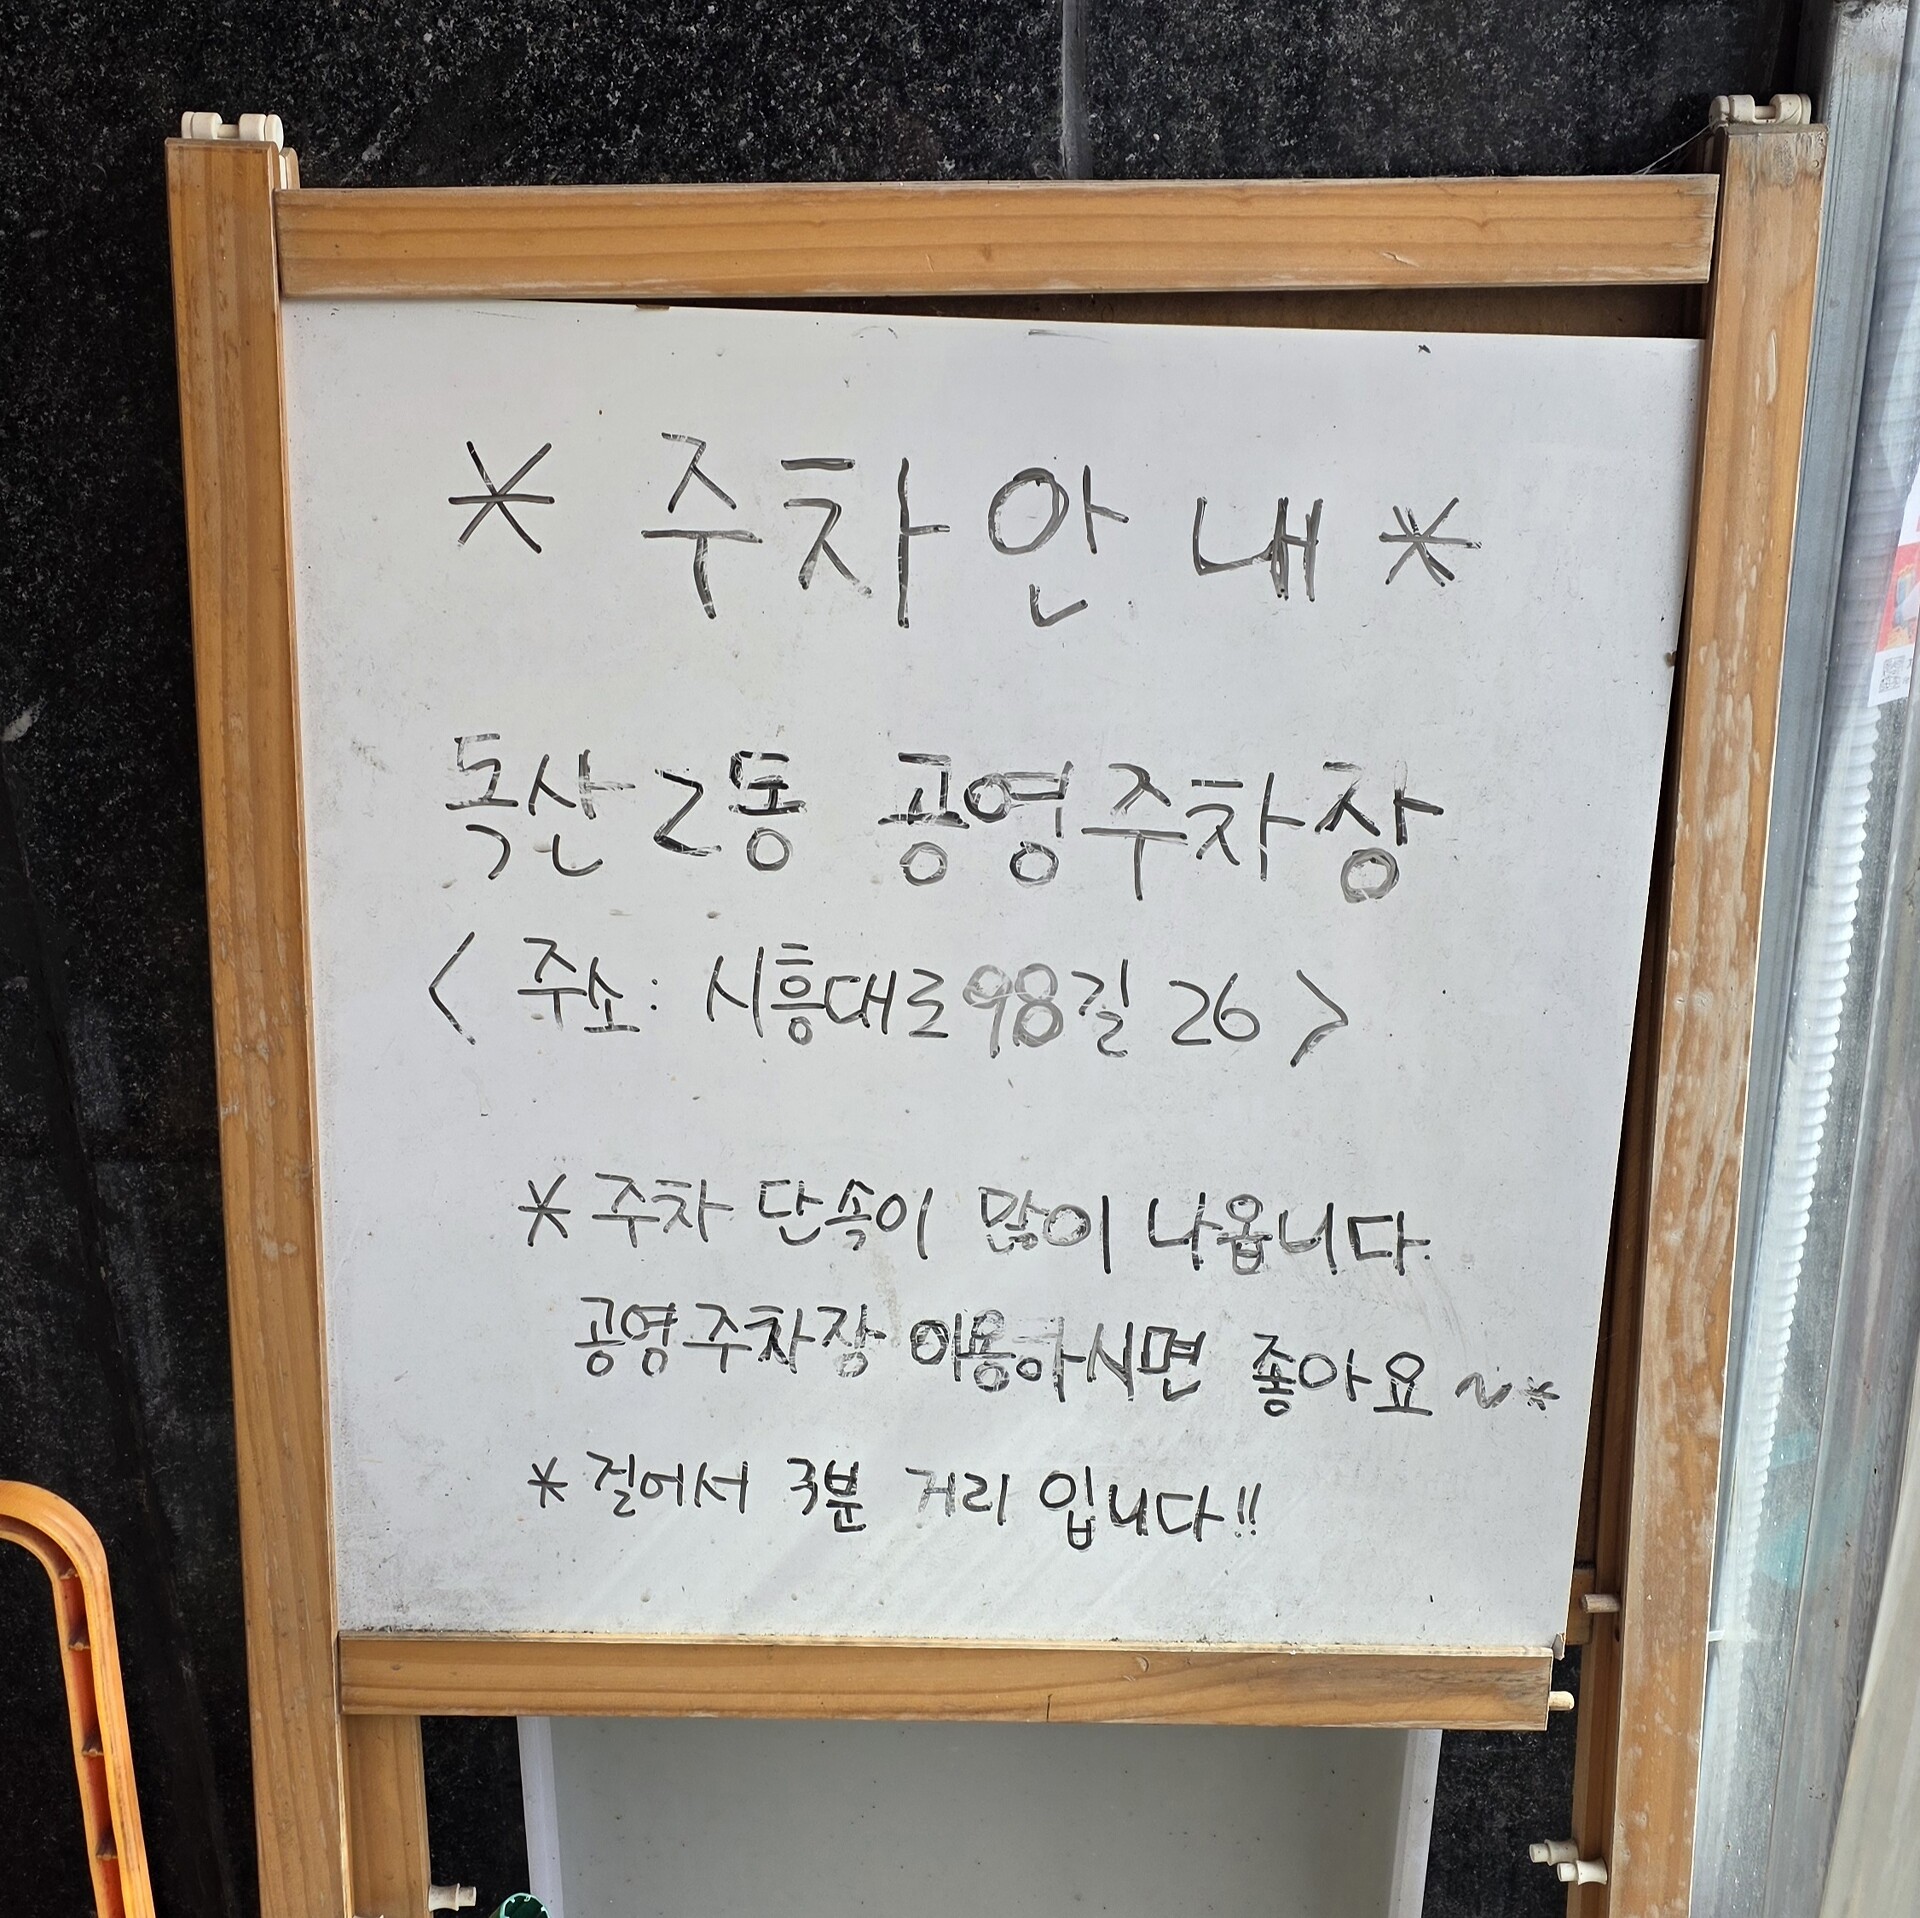 * 주차 안내 *
독산2동 공영주차장
< 주소: 시흥대로98길 26 >
* 주차 단속이 많이 나옵니다.
공영주차장 이용하시면 좋아요 ~*
* 걸어서 3분 거리 입니다!!